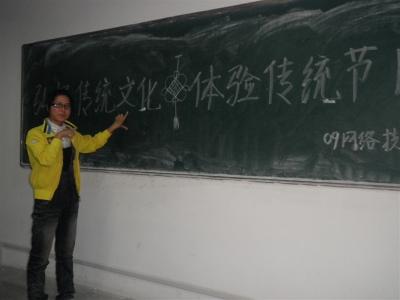 弘扬传统文化 体验传统节
09网络技